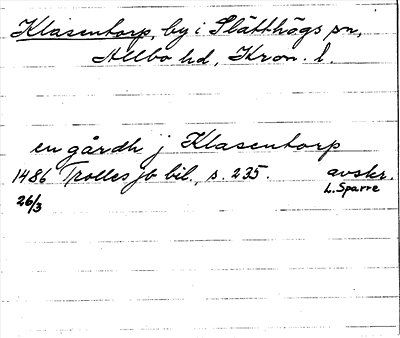 Klasentorp, by i Slätthögs sn,
Allbo hd, Kron. l.
en gårdh j Klasentorp
1486 Trolles jb bil., s. 235. avskr.
26/3 L. Sparre